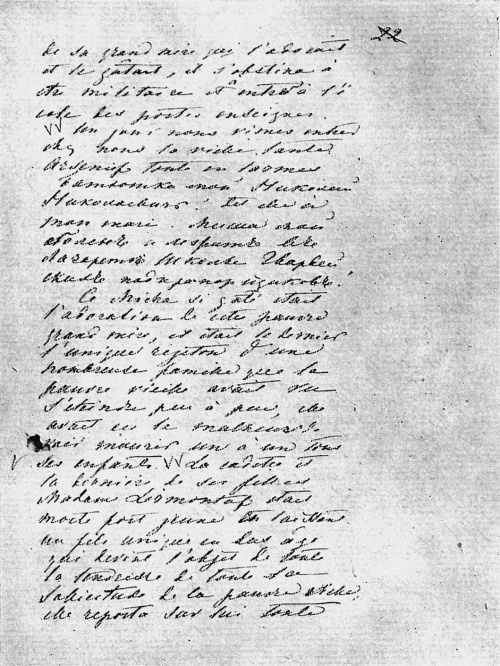 22
de sa grand mère qui l'adorait
et le gâtait, il s'obstina à
être militaire et entra à l'é
cole des portes enseignes.
Un jour nous vîmes entrer
chez nous la vieille tante
Arsenieff toute en larmes
Батюшка мой Николай
Николаевичь! dit elle à
mon mari. Миша мой
боленъ и лежитъ въ
Лазаретѣ Школы Гвардей
скихъ подпрапорщиковъ!
Ce Micha si gâté était
l'adoration de cette pauvre
grand mère, il était le dernier
l'unique rejeton d'une
nombreuse famille que la
pauvre vieille avait vu
s'éteindre peu à peu. elle
avait eu le malheur de
voir mourir un à un tous
ses enfants. La cadette et
la dernière de ses filles
Madame Lermontoff était
morte fort jeune en laissant
un fils unique en bas âge
qui devint l'objet de toute
la tendresse de toute la
sollicitude de la pauvre vieille.
elle reporta sur lui toute